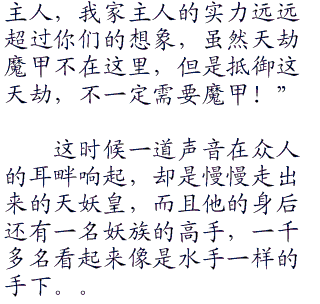 主人，我家主人的实力远远
超过你们的想象，虽然天劫
魔甲不在这里，但是抵御这
天劫，不一定需要魔甲！”
这时候一道声音在众人
的耳畔响起，却是慢慢走出
来的天妖皇，而且他的身后
还有一名妖族的高手，一千
多名看起来像是水手一样的
手下。。